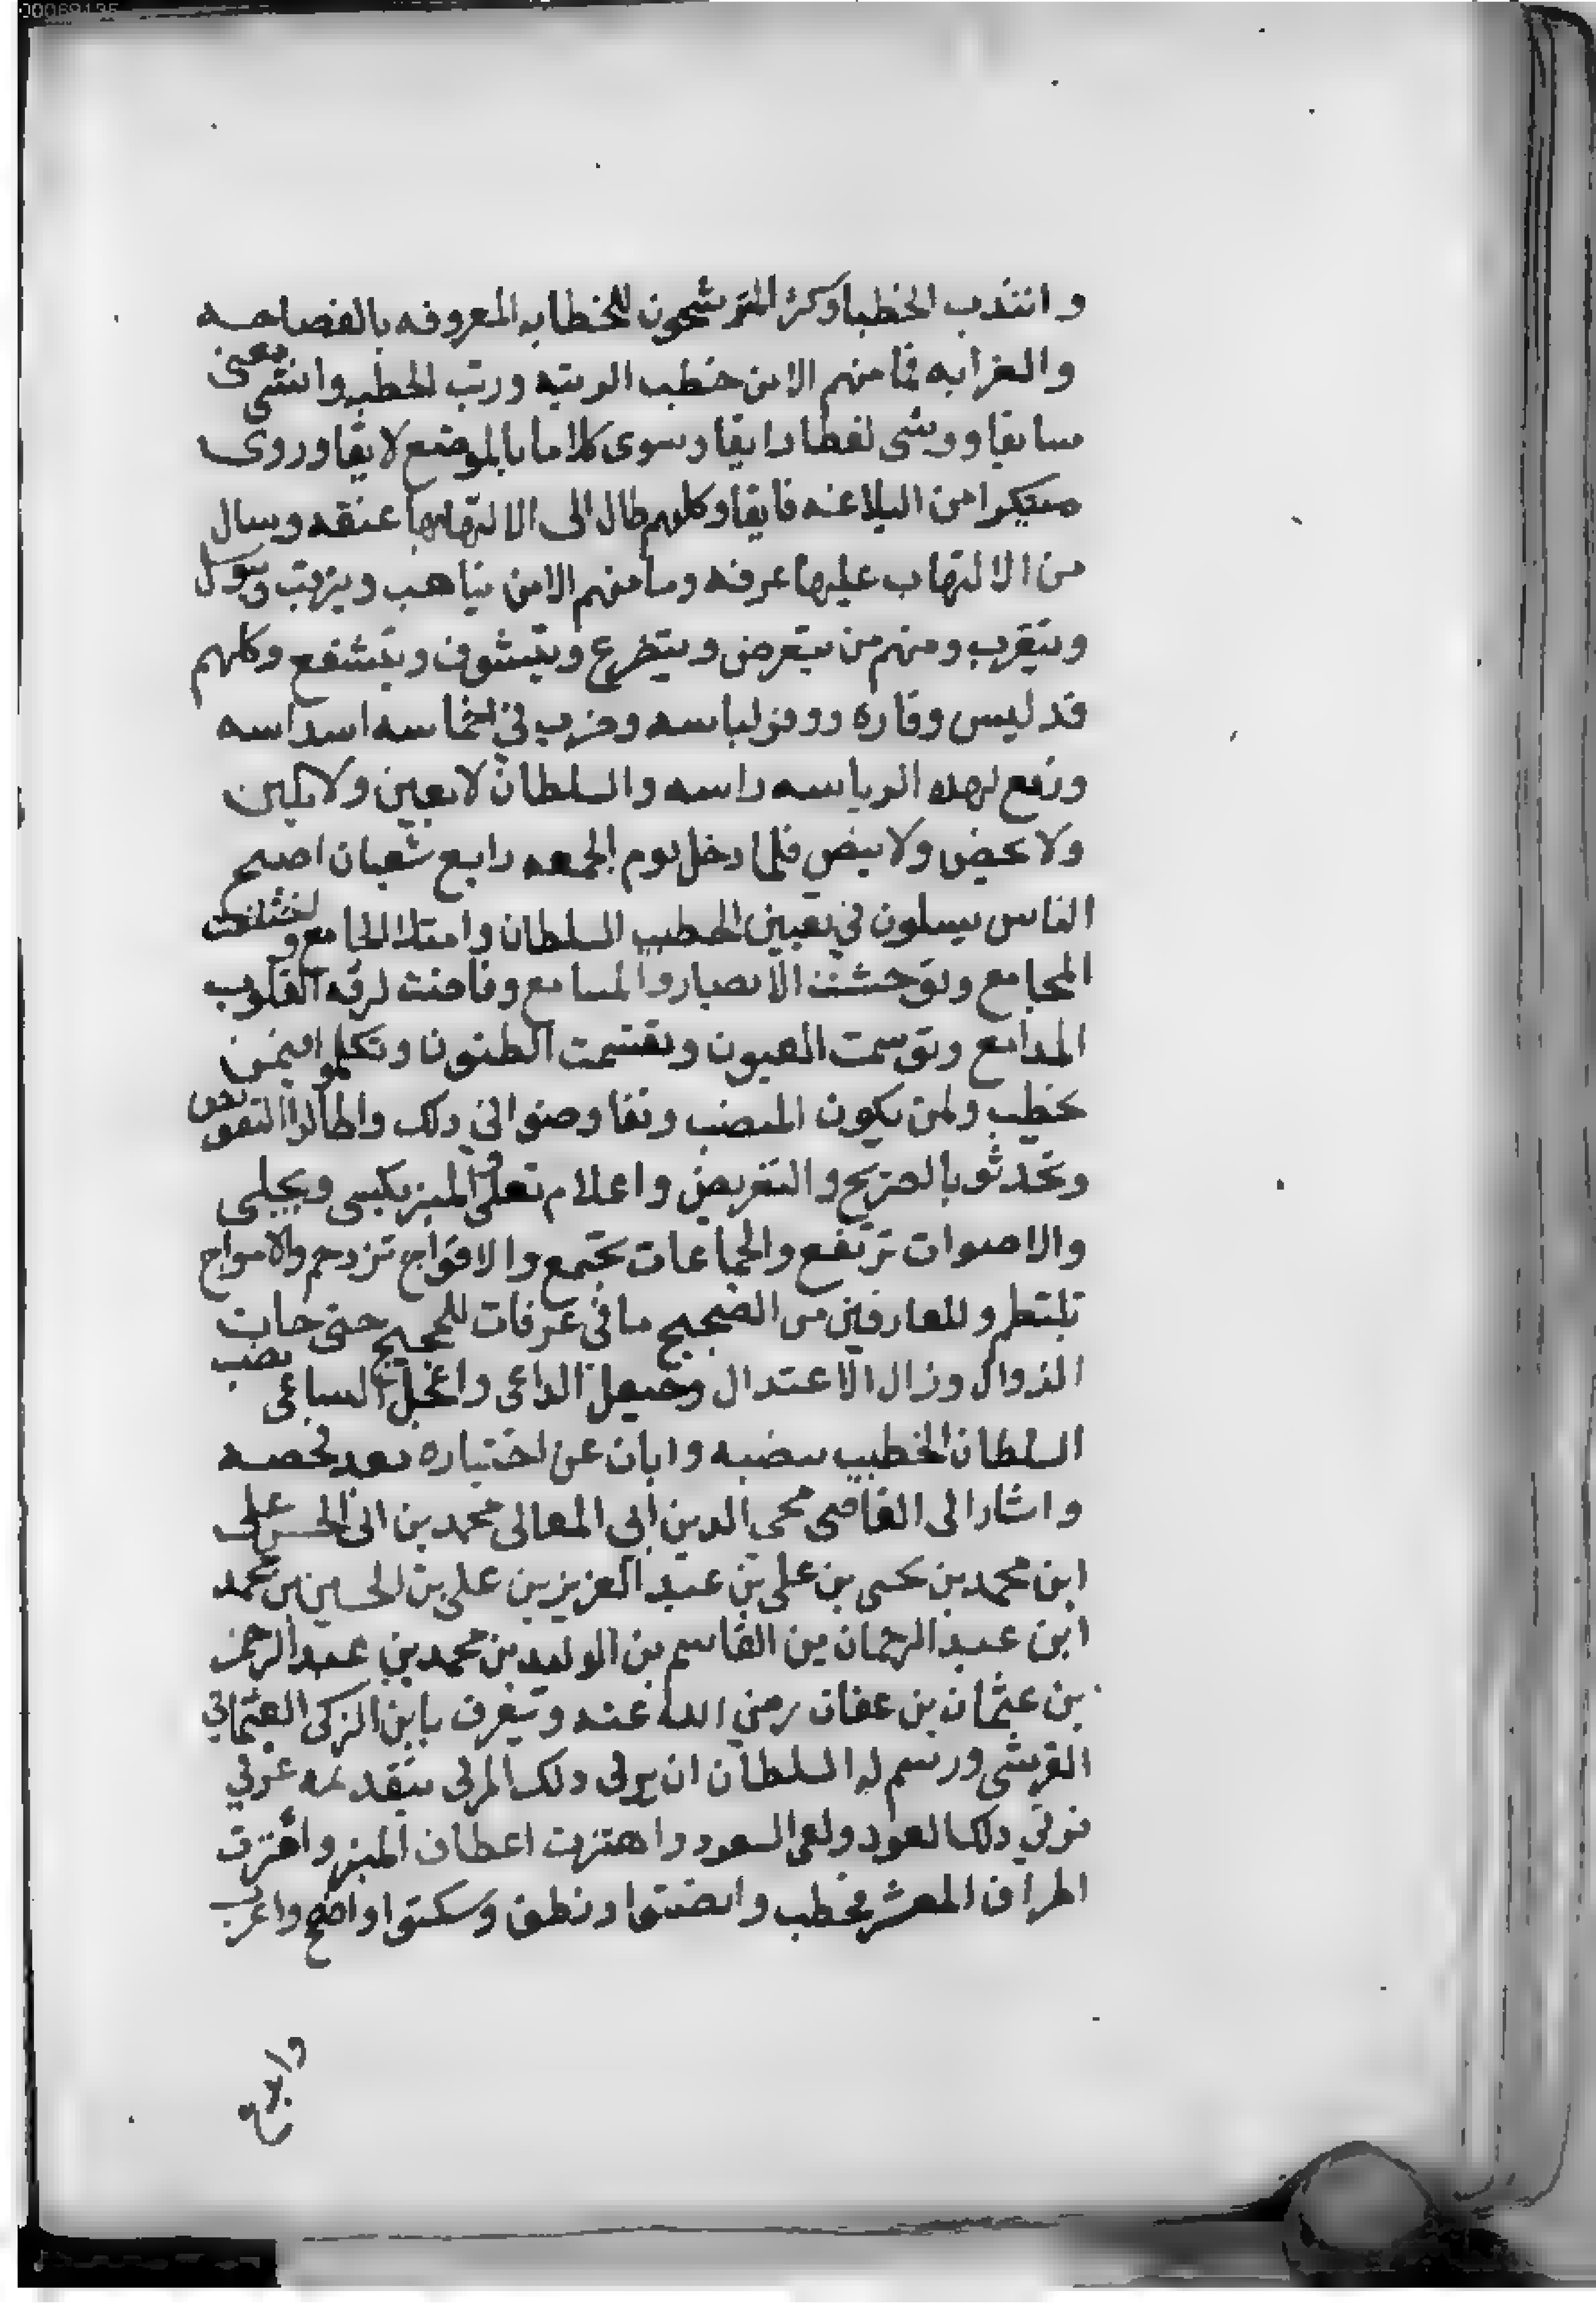 وانتدب الخطبا وكثر المترشحون للخطابه المعروفه بالفصاحه
والعرابه فما منهم الا من خطب الرتبه ورتب الخطبه وانشى معنى
سابقا ووشى لفظا رايقا وسوى كلاما بالموضع لايقا وروى
مبتكرا من البلاغه فايقا وكلهم طال الى الالتهابها عنقه وسال
من الالتهاب عليها عرقه وما منهم الا من يتاهب ويترتب ويتوسل
ويتقرب ومنهم من يتعرض ويتضرع ويتشوف ويتشفع وكلهم
قد لبس وقاره ووقر لباسه وضرب في اخماسه اسداسه
ورفع لهذه الرياسه راسه والسلطان لا يعين ولا يبين
ولا يخص ولا ينص فلما دخل يوم الجمعه رابع شعبان اصبح
الناس يسلون في تعيين الخطيب السلطان وامتلا الجامع واحتفلت
المجامع وتوجست الابصار والمسامع وفاضت لرقه القلوب
المدامع وتوسمت العيون وتقسمت الظنون وتكلموا فيمن
يخطب ولمن يكون المنصب وتفاوضوا في ذلك واطالوا التفويض
وتحدثو بالصريح والتعريض واعلام تعلى والمنبر يكسى ويجلى
والاصوات ترتفع والجماعات تجتمع والافواج تزدحم والامواج
تلتطم وللعارفين من الضجيج ما في عرفات للحجيج حتى حان
الزوال وزال الاعتدال وحيعل الداعى واعجل الساعى نصب
السلطان الخطيب بنصبه وابان عن اختياره بعد فحصه
واشار الى القاضى محي الدين ابي المعالى محمد بن ابى الحسن على
ابن محمد بن يحيى بن على بن عبد العزيز بن على بن الحسين بن محمد
ابن عبد الرحمان بن القاسم بن الوليد بن محمد بن عبد الرحمن
بن عثمان بن عفان رضي الله عنه ويعرف بابن الزكى العثماني
القرشى ورسم له السلطان ان يرقى ذلك المرقى بتقديمه عرقي
فرقي ذلك العود ولقى السعود واهتزت اعطاف المنبر واعتزت
اطراف المعشر فخطب وانصتوا ونطق وسكتوا وافصح واعرب
وابدع